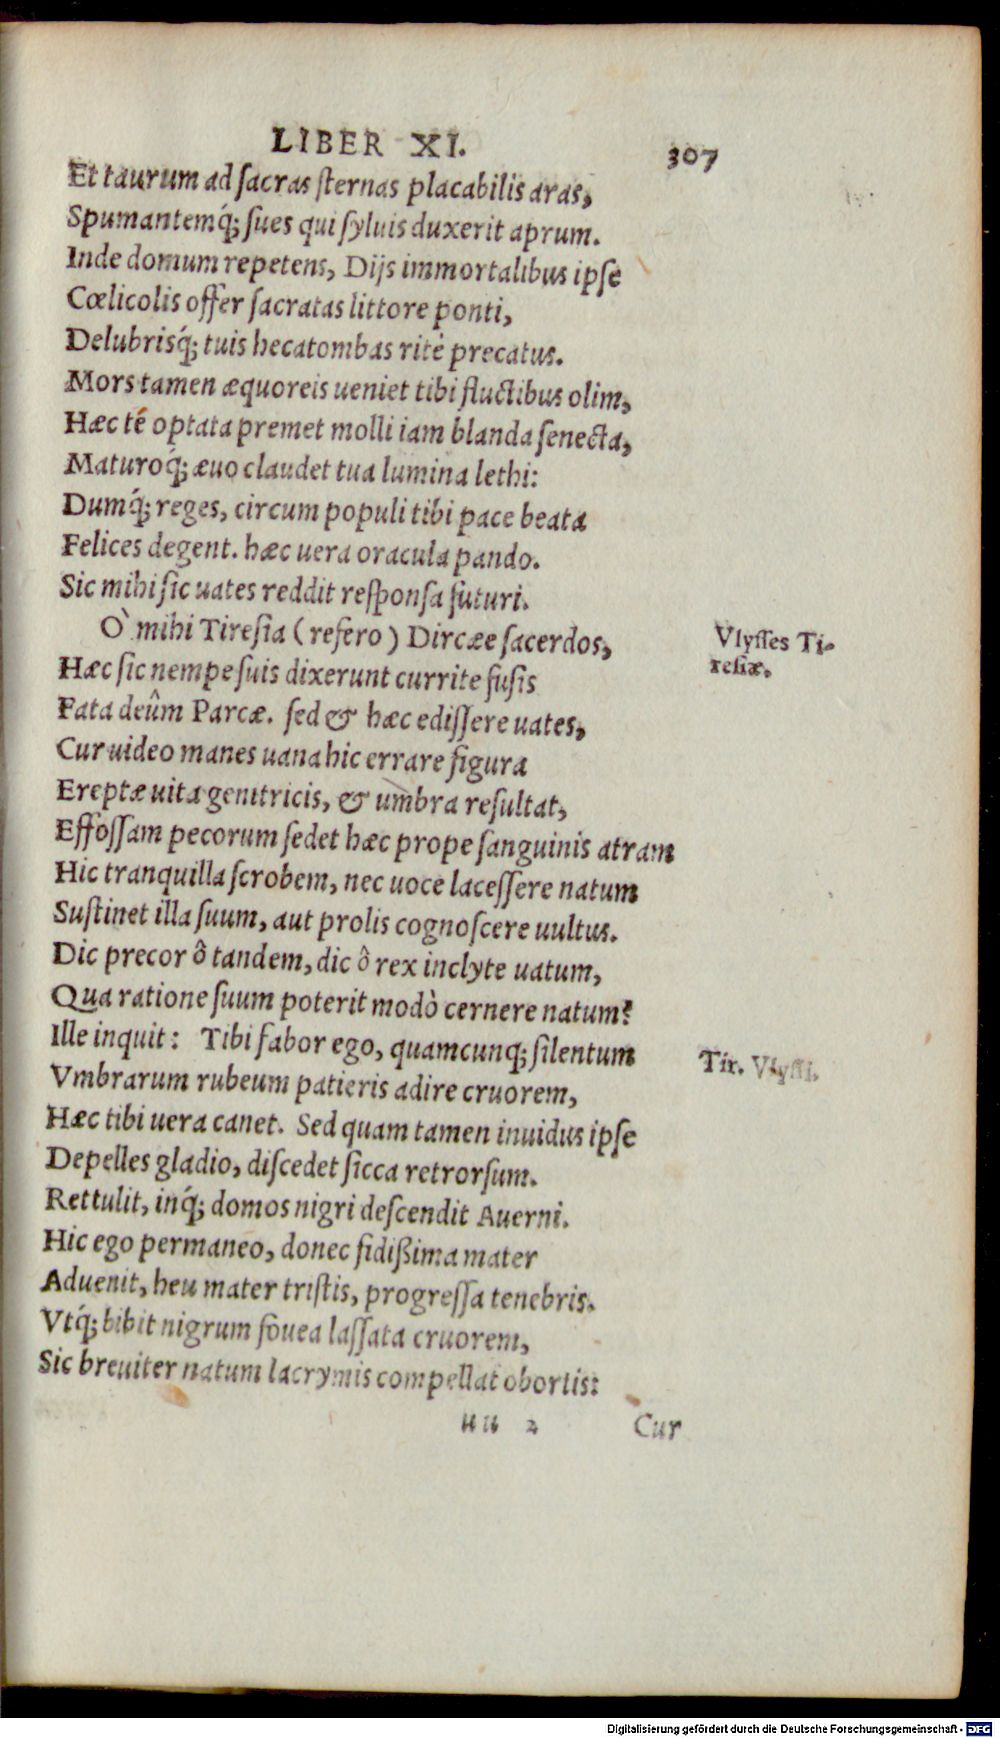 LIBER XI. 307
Et taurum ad sacras sternas placabilis aras,
Spumantemq́; sues qui syluis duxerit aprum.
Inde domum repetens, Dijs immortalibus ipse
Cœlicolis offer sacratas littore ponti,
Delubrisq́; tuis hecatombas ritè precatus.
Mors tamen æquoreis ueniet tibi fluctibus olim,
Hæc té optata premet molli iam blanda senecta,
Maturoq́; æuo claudet tua lumina lethi:
Dumq́; reges, circum populi tibi pace beata
Felices degent. hæc uera oracula pando.
Sic mihi sic uates reddit responsa futuri.
Ò mihi Tiresia (refero) Dircæe sacerdos,
Vlysses Ti-
resiæ.
Hæc sic nempe suis dixerunt currite fusis
Fata deûm Parcæ. sed & hæc edissere uates,
Cur uideo manes uana hic errare figura
Ereptæ uita genitricis, & umbra resultat,
Effossam pecorum sedet hæc prope sanguinis atram
Hic tranquilla scrobem, nec uoce lacessere natum
Sustinet illa suum, aut prolis cognoscere uultus.
Dic precor ô tandem, dic ô rex inclyte uatum,
Qua ratione suum poterit modò cernere natum?
Ille inquit: Tibi fabor ego, quamcunq; silentum
Tir. Vlyssi.
Vmbrarum rubeum patieris adire cruorem,
Hæc tibi uera canet. Sed quam tamen inuidus ipse
Depelles gladio, discedet sicca retrorsum.
Rettulit, inq́; domos nigri descendit Auerni.
Hic ego permaneo, donec fidißima mater
Aduenit, heu mater tristis, progressa tenebris.
Vtq́; bibit nigrum fouea lassata cruorem,
Sic breuiter natum lacrymis compellat obortis:
uu 2 Cur
Digitalisierung gefördert durch die Deutsche Forschungsgemeinschaft - DFG